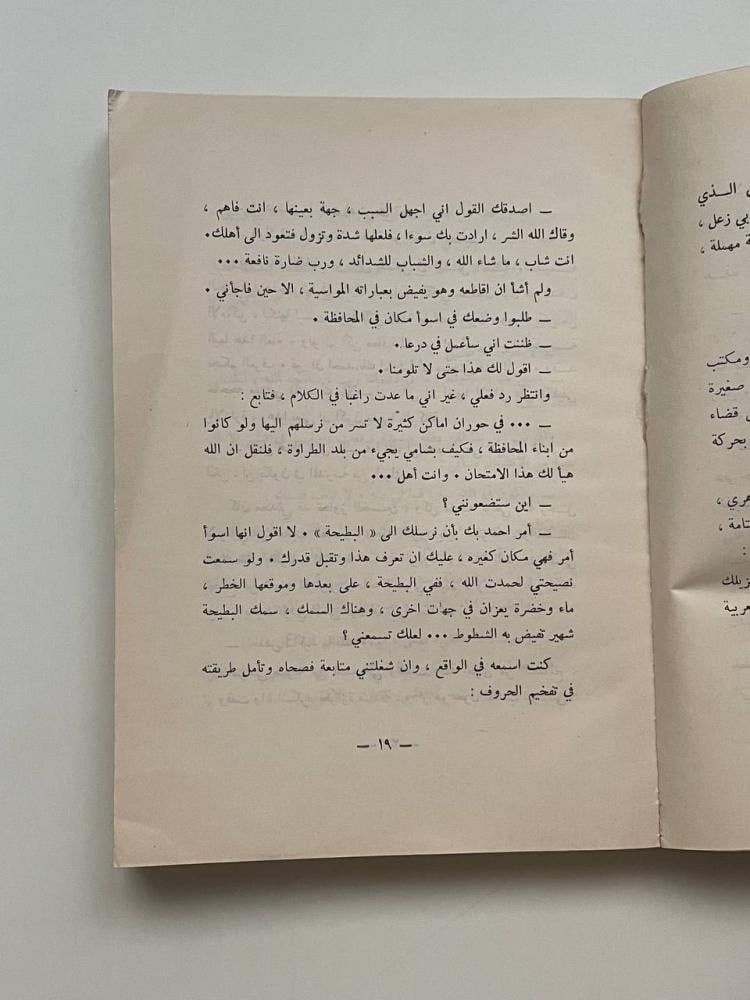 ــ اصدقك القول اني اجهل السبب ، جهة بعينها ، انت فاهم ،
وقاك الله الشر ، ارادت بك سوءا ، فلعلها شدة وتزول فتعود الى أهلك.
انت شاب ، ما شاء الله ، والشباب للشدائد ، ورب ضارة نافعة ...
ولم أشأ ان اقاطعه وهو يفيض بعباراته المواسية ، الا حين فاجأني .
ــ طلبوا وضعك في اسوأ مكان في المحافظة .
ــ ظننت اني سأعمل في درعا .
ــ اقول لك هذا حتى لا تلومنا .
وانتظر رد فعلي ، غير اني ما عدت راغبا في الكلام ، فتابع :
ــ ... في حوران اماكن كثيرة لا تسر من نرسلهم اليها ولو كانوا
من ابناء المحافظة ، فكيف بشامي يجيء من بلد الطراوة ، فلنقل ان الله
هيأ لك هذا الامتحان . وانت أهل ...
ــ اين ستضعونني ؟
ــ أمر احمد بك بأن نرسلك الى « البطيحة » . لا اقول انها اسوأ
أمر فهي مكان كغيره ، عليك ان تعرف هذا وتقبل قدرك . ولو سمعت
نصيحتي لحمدت الله ، ففي البطيحة ، على بعدها وموقعها الخطر ،
ماء وخضرة يعزان في جهات اخرى ، وهناك السمك ، سمك البطيحة
شهير تفيض به الشطوط ... لعلك تسمعني ؟
كنت اسمعه في الواقع ، وان شغلتني متابعة فصحاه وتأمل طريقته
في تفخيم الحروف :
ــ ١٩ ــ
الــذي
بي زعل ،
مهملة ،
ومكتب
صغيرة
قضاء
بحركة